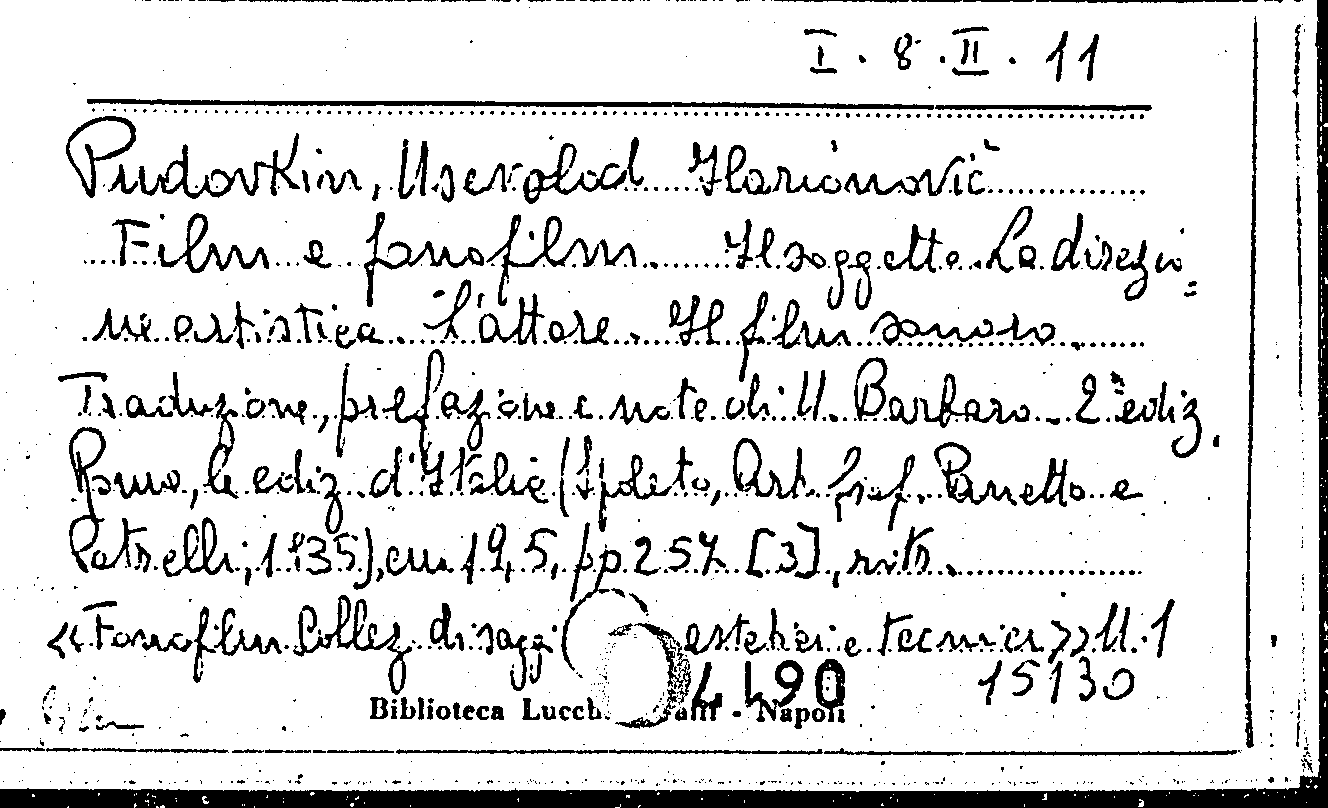 I. 8. II. 11
Pudovkin, Usevolod Ilarionovič
Film e fonofilm. Il soggetto. La direzio=
ne artistica. L'attore. Il film sonoro.
Traduzione, prefazione e note di U. Barbaro. 2ª ediz.
Roma, le ediz. d'Italia (Spoleto, Art. Graf. Panetto e
Petrelli, 1935), cm. 19,5, pp 257 [3], ritr.
«Fonofilm Collez. di saggi estetici e tecnici» N. 1
4190 15130
Biblioteca Lucch - Napoli